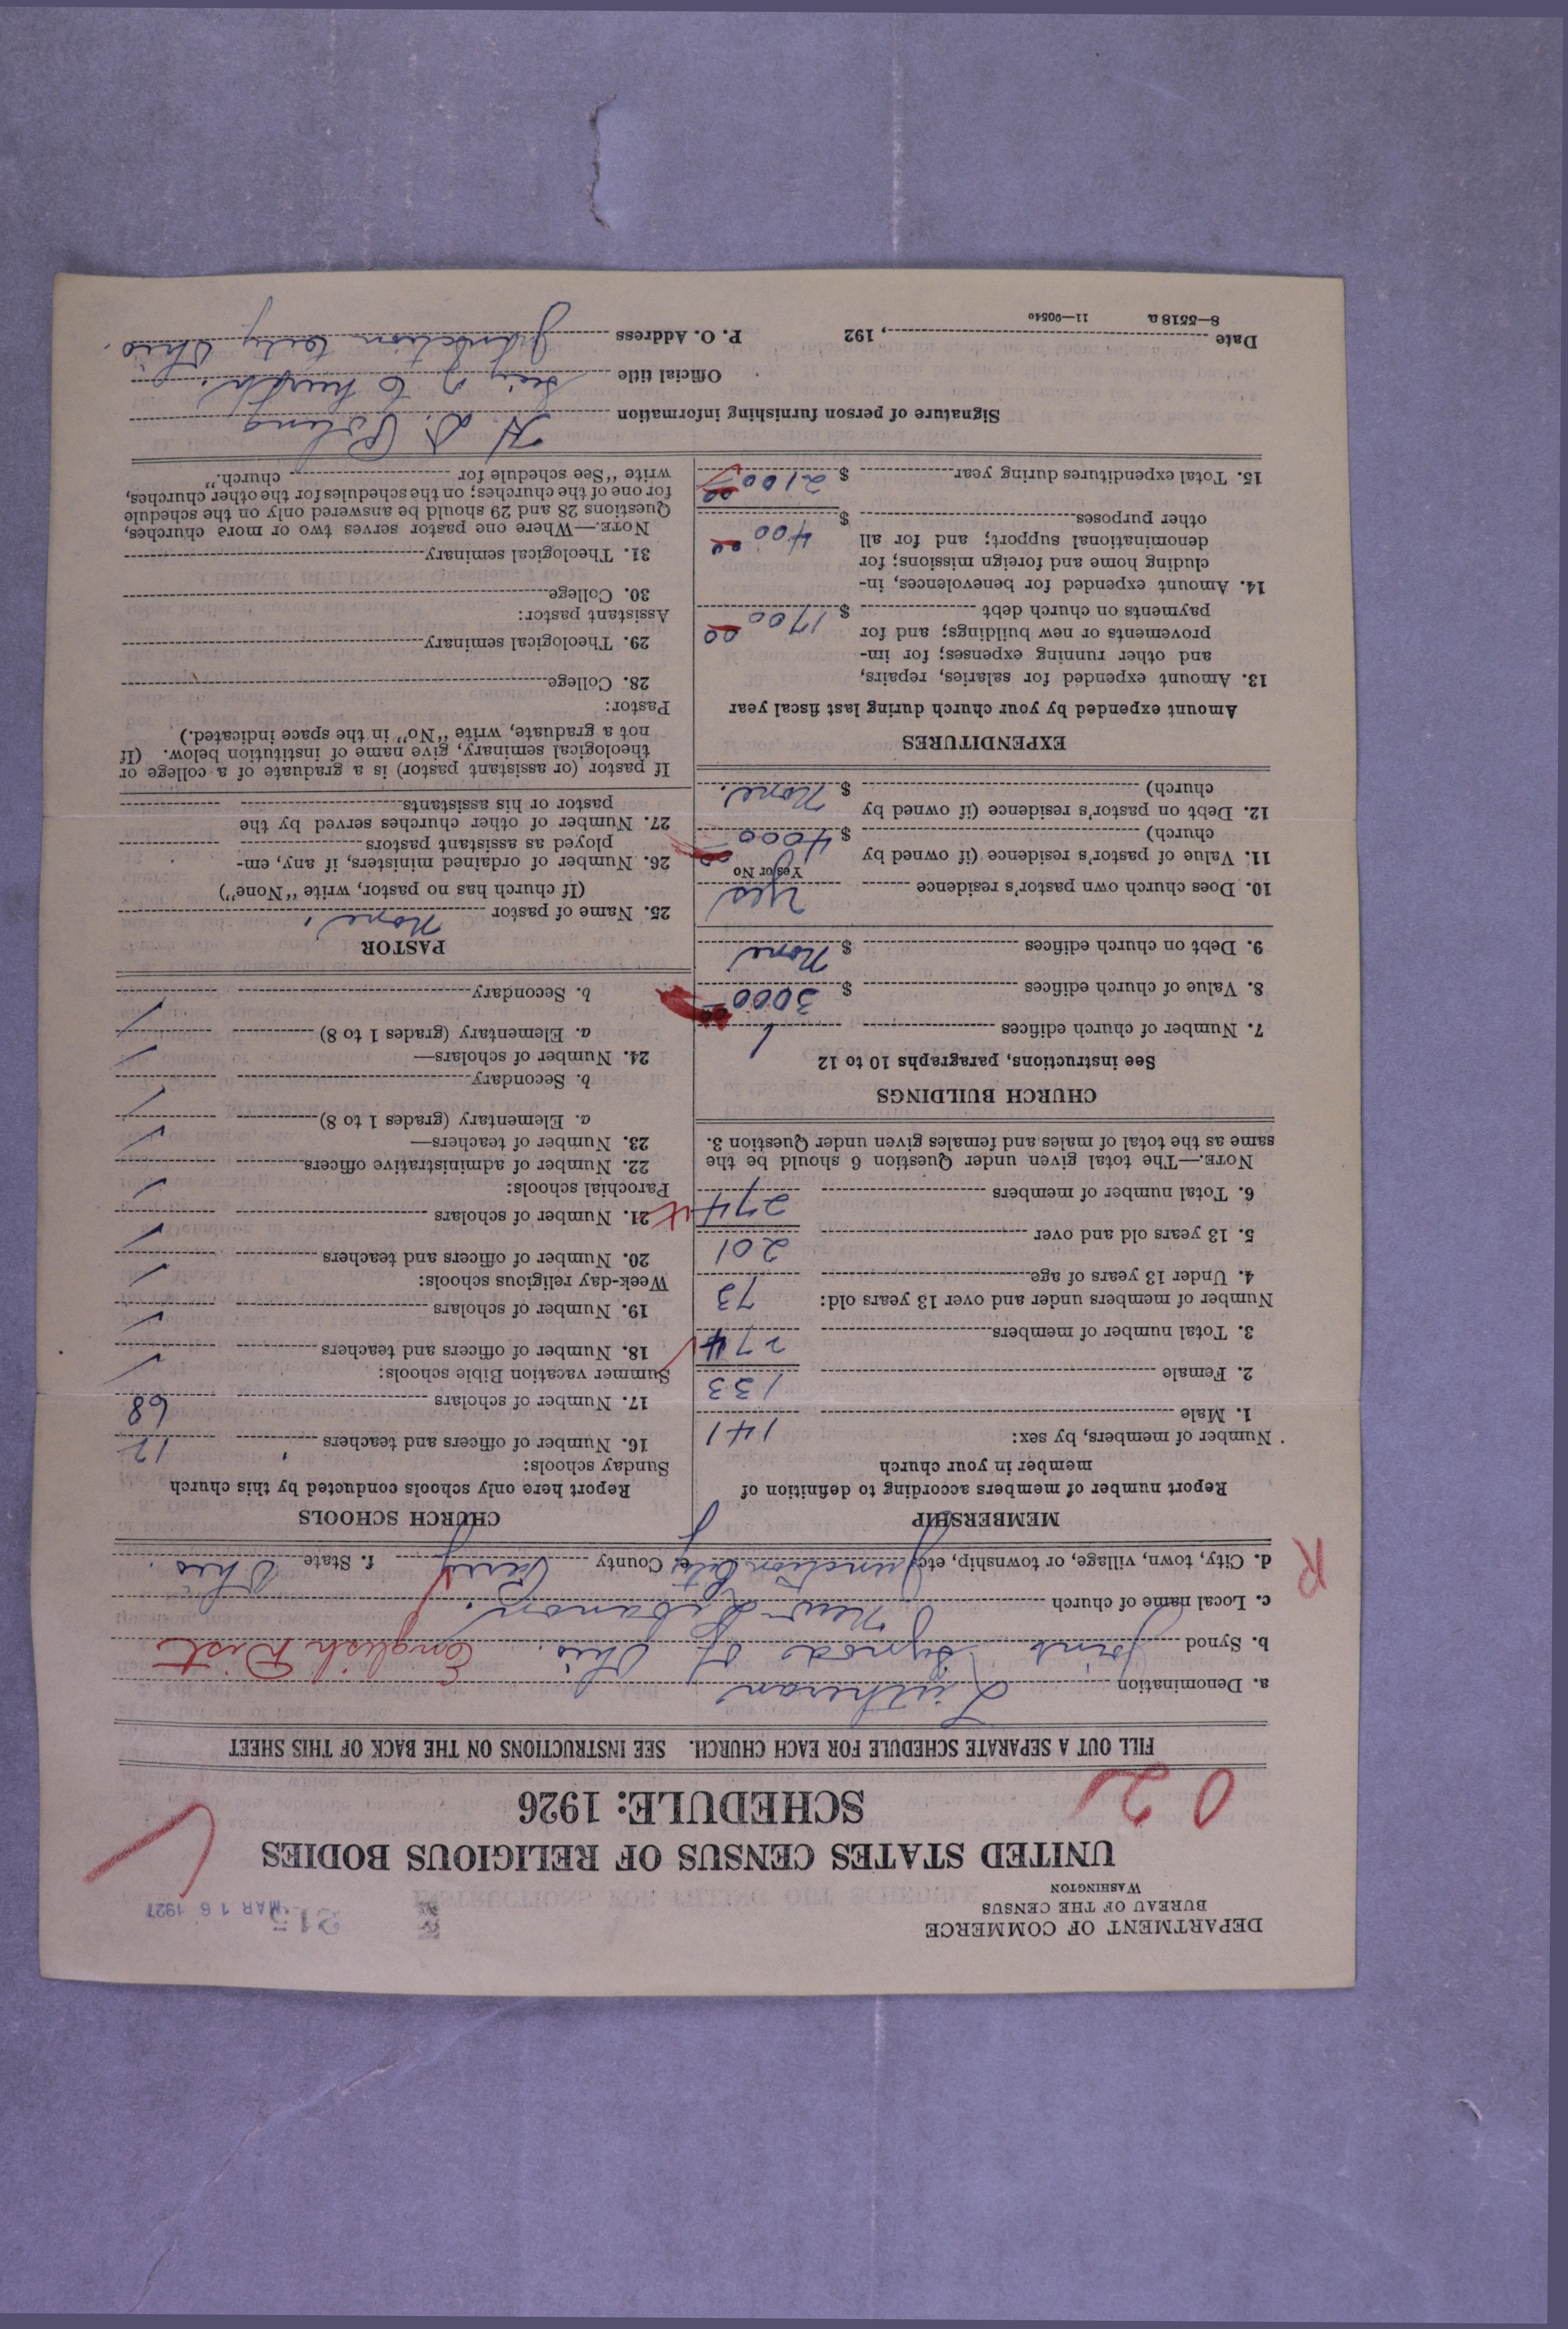 DEPARTMENT OF COMMERCE
BUREAU OF THE CENSUS
WASHINGTON
215
MAR 16 1927
UNITED STATES CENSUS OF RELIGIOUS BODIES
SCHEDULE: 1926
0 2
FILL OUT A SEPARATE SCHEDULE FOR EACH CHURCH. SEE INSTRUCTIONS ON THE BACK OF THIS SHEET
a. Denomination Lutheran
b. Synod Joint Synod of Ohio. English Dist
c. Local name of church New Lebanon.
R
d. City, town, village, or township, etc. Junction City e. County Perry f. State Ohio.
MEMBERSHIP
Report number of members according to definition of
member in your church
Number of members, by sex:
1. Male 141
2. Female 133
3. Total number of members 274
Number of members under and over 13 years old:
4. Under 13 years of age 73
5. 13 years old and over 201
6. Total number of members 274
NOTE.—The total given under Question 6 should be the
same as the total of males and females given under Question 3.
CHURCH BUILDINGS
See instructions, paragraphs 10 to 12
7. Number of church edifices 1
8. Value of church edifices $ 3000 00
9. Debt on church edifices $ None
10. Does church own pastor's residence Yes
Yes or No
11. Value of pastor's residence (if owned by
church) $ 4000 00
12. Debt on pastor's residence (if owned by
church) $ None.
EXPENDITURES
Amount expended by your church during last fiscal year
13. Amount expended for salaries, repairs,
and other running expenses; for im-
provements or new buildings; and for
payments on church debt $ 1700 00
14. Amount expended for benevolences, in-
cluding home and foreign missions; for
denominational support; and for all
other purposes $ 400 00
15. Total expenditures during year $ 2100 00
CHURCH SCHOOLS
Report here only schools conducted by this church
Sunday schools:
16. Number of officers and teachers 12
17. Number of scholars 68
Summer vacation Bible schools:
18. Number of officers and teachers
19. Number of scholars
Week-day religious schools:
20. Number of officers and teachers
21. Number of scholars
Parochial schools:
22. Number of administrative officers
23. Number of teachers—
a. Elementary (grades 1 to 8)
b. Secondary
24. Number of scholars—
a. Elementary (grades 1 to 8)
b. Secondary
PASTOR
25. Name of pastor None.
(If church has no pastor, write "None")
26. Number of ordained ministers, if any, em-
ployed as assistant pastors
27. Number of other churches served by the
pastor or his assistants
If pastor (or assistant pastor) is a graduate of a college or
theological seminary, give name of institution below. (If
not a graduate, write "No" in the space indicated.)
Pastor:
28. College
29. Theological seminary
Assistant pastor:
30. College
31. Theological seminary
NOTE.—Where one pastor serves two or more churches,
Questions 28 and 29 should be answered only on the schedule
for one of the churches; on the schedules for the other churches,
write "See schedule for church."
Signature of person furnishing information H. D. Poling
Official title of Church.
Date , 192 P. O. Address Junction City Ohio.
8—5518 a 11—9054a